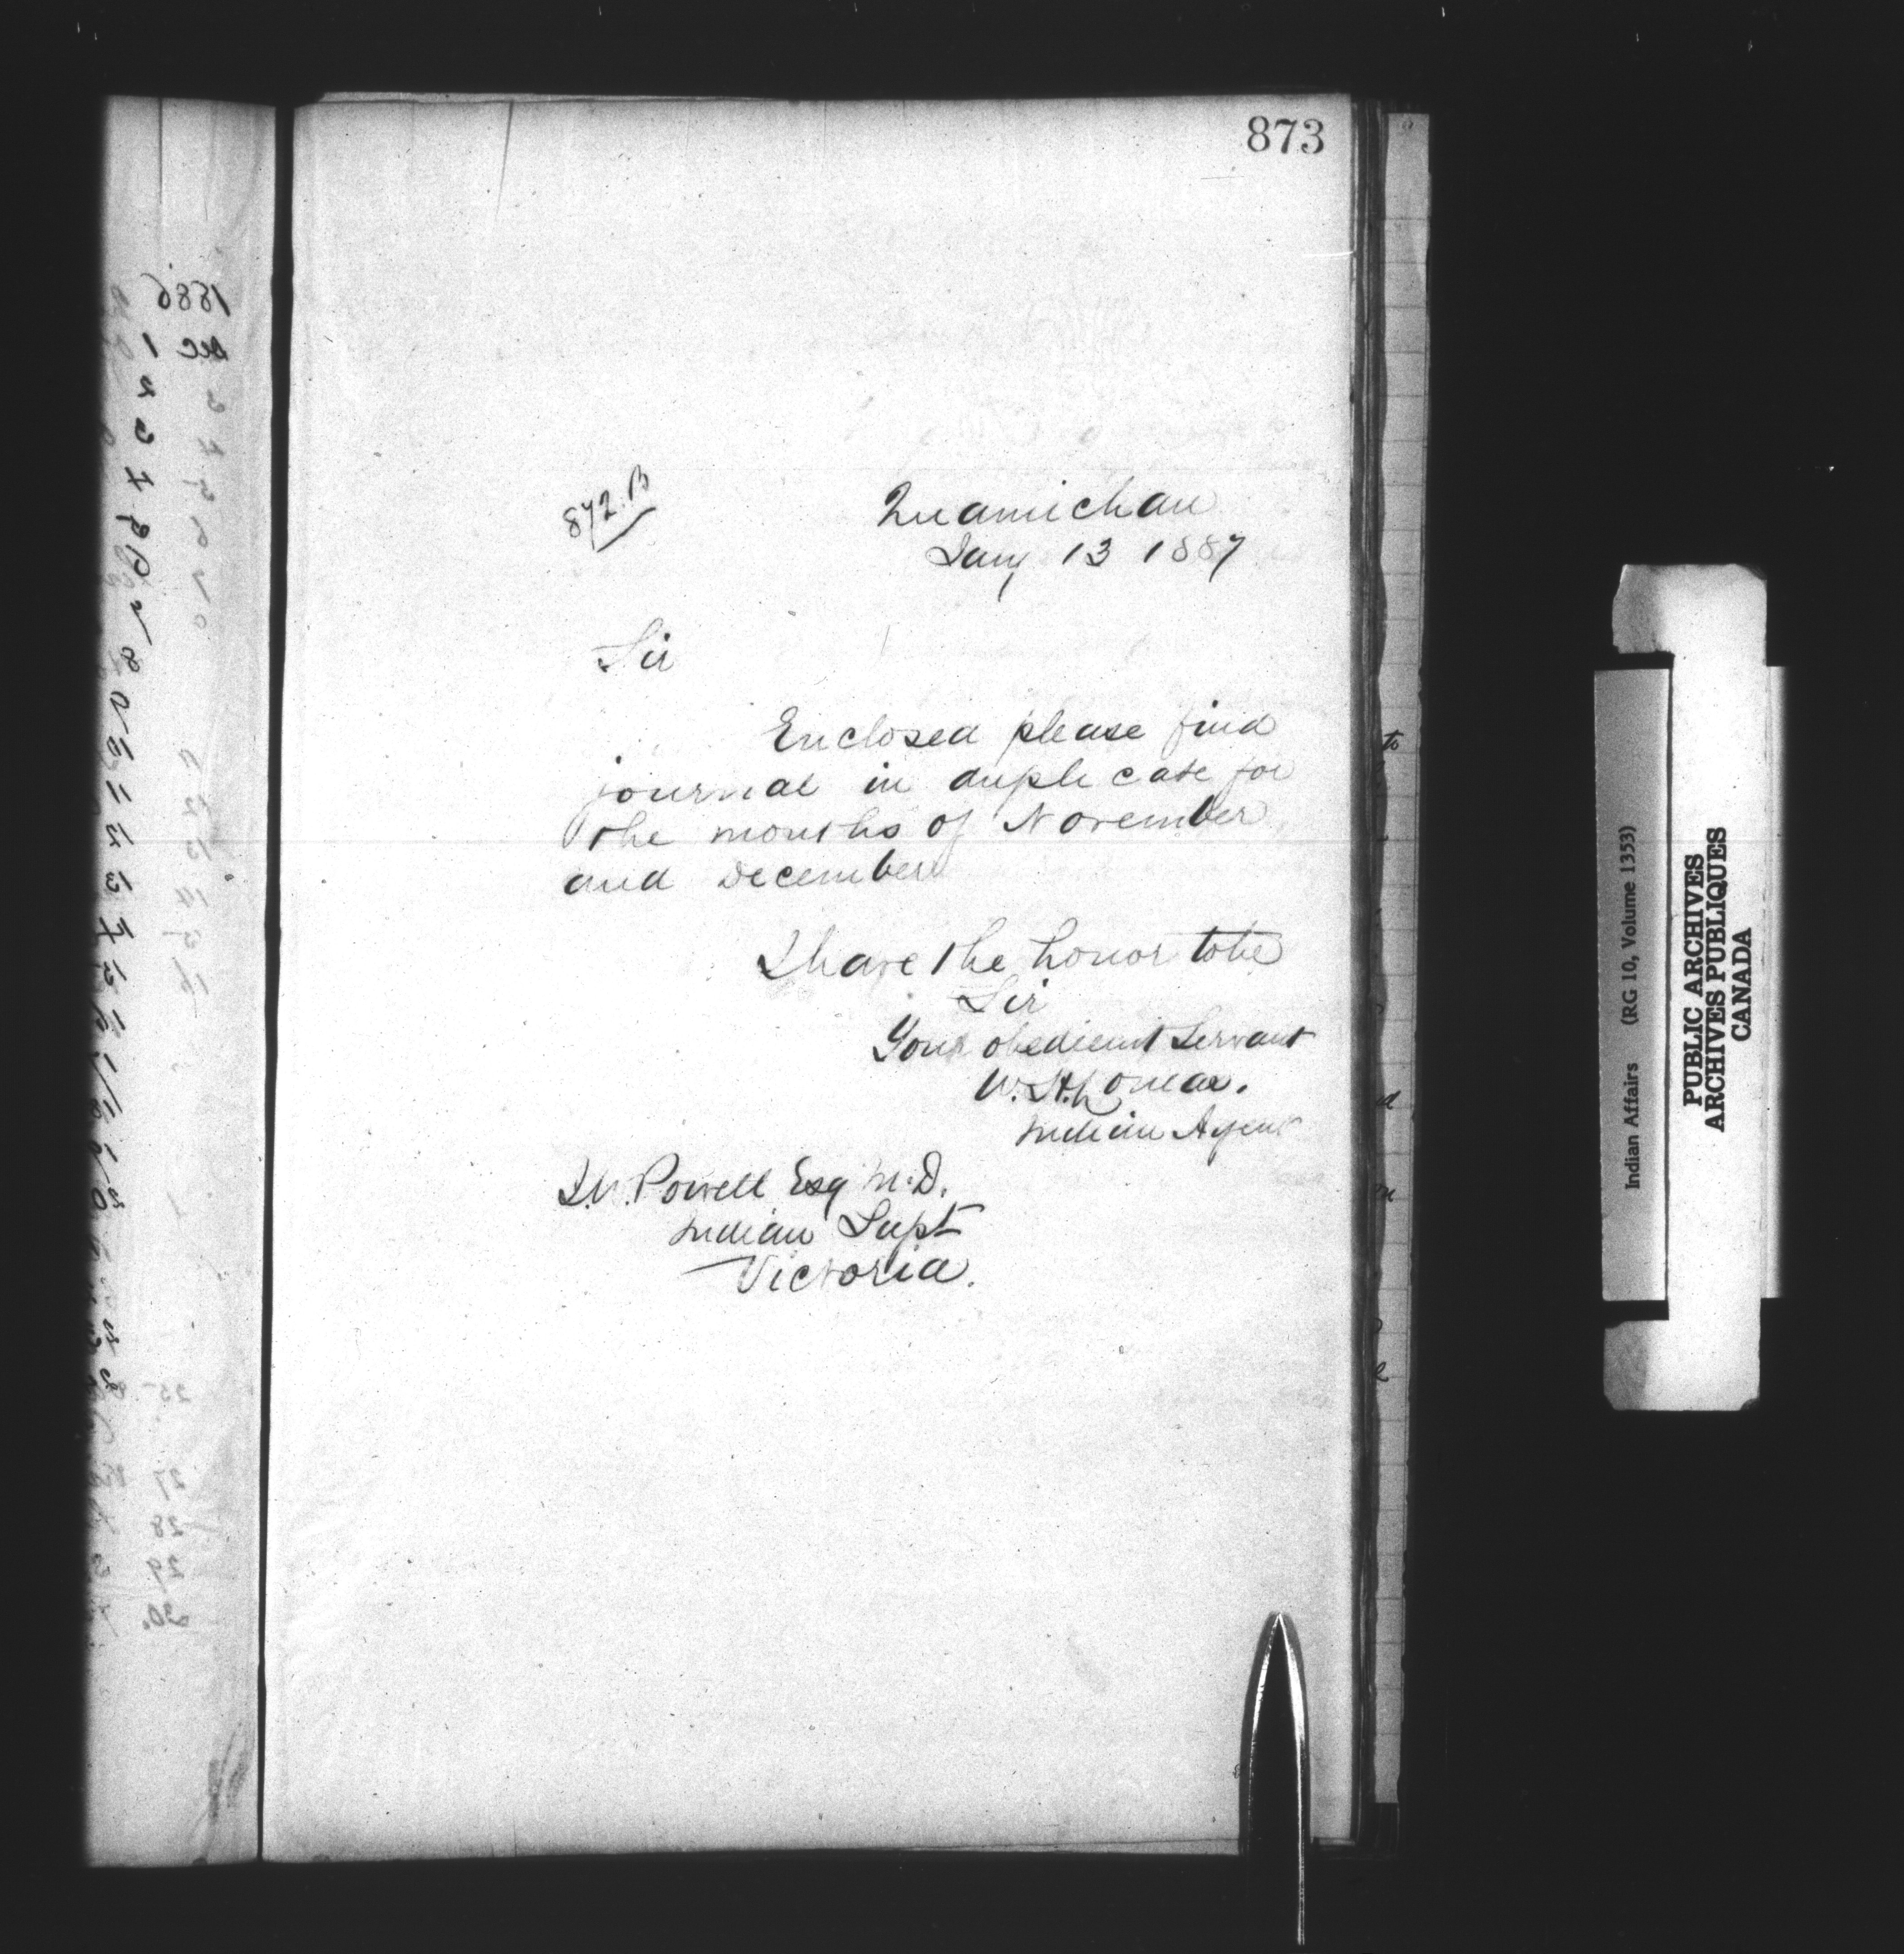 873
872.B
Quamichan
Jany 13 1887
Sir
Enclosed please find
journal in duplicate for
the months of November
and December
I have the honor to be
Sir
Your obedient Servant
W.H. Lomas.
Indian Agent
I.W. Powell Esq M.D.
Indian Supt
Victoria.
1886
Dec 1
25
27
28
29
30.
Indian Affairs (RG 10, Volume 1353)
PUBLIC ARCHIVES
ARCHIVES PUBLIQUES
CANADA